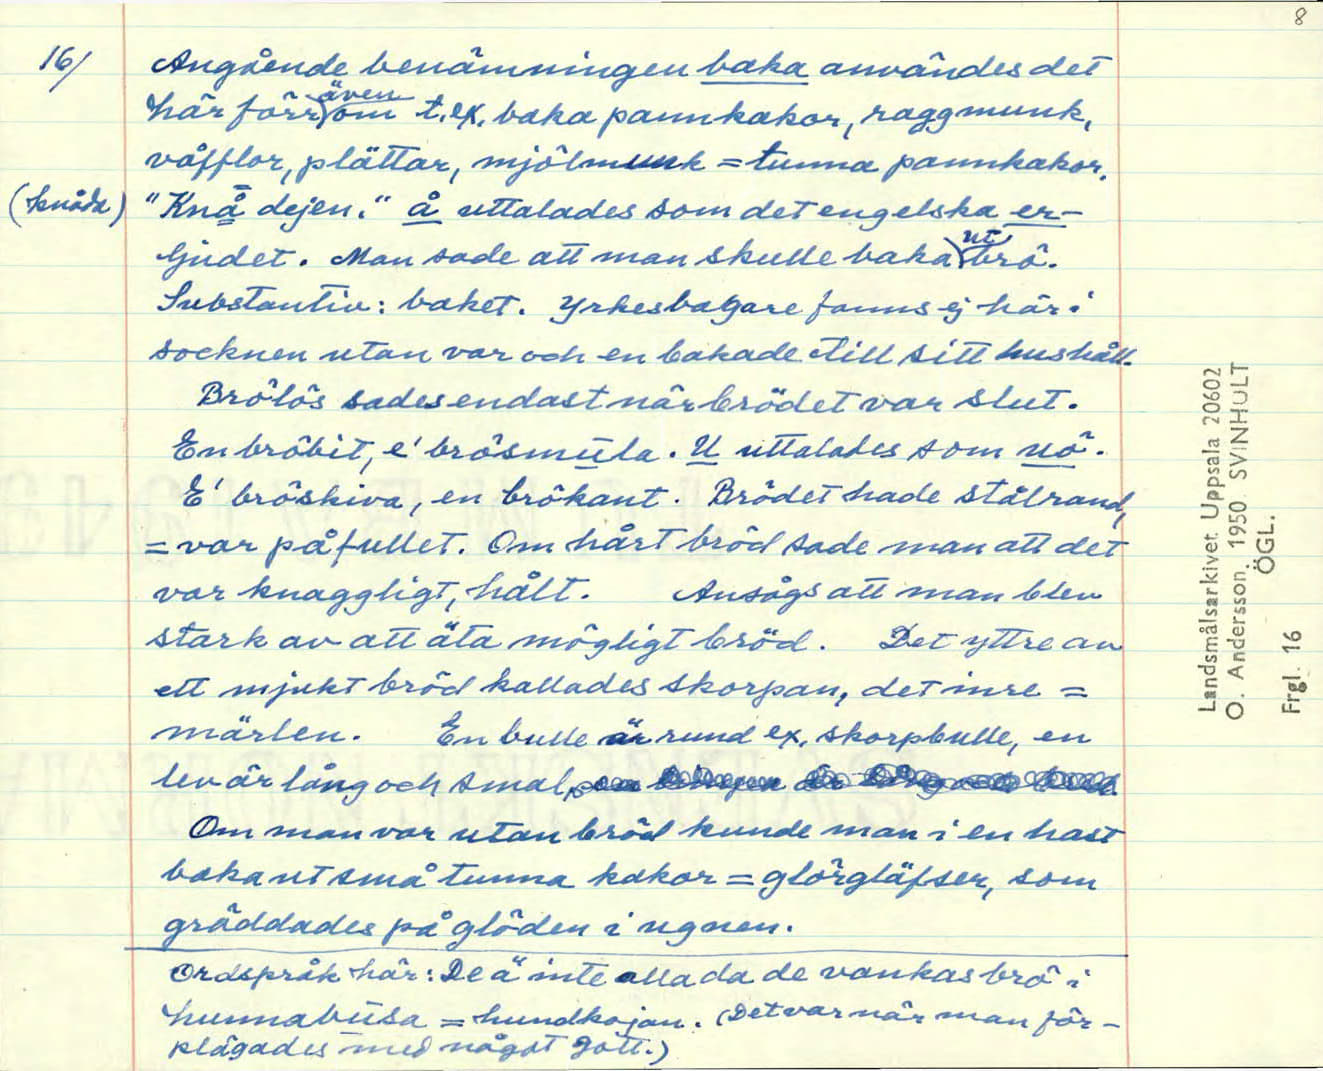 8
16/ Angående benämningen baka användes det
här förr även om t.ex. baka pannkakor, raggmunk,
våfflor, plättar, mjölmunk = tunna pannkakor.
(knåda) "Knå dejen." å uttalades som det engelska er-
ljudet. Man sade att man skulle baka ut brö.
Substantiv: baket. Yrkesbagare fanns ej här i
socknen utan var och en bakade till sitt hushåll.
Brölös sades endast när brödet var slut.
En bröbit, e' brösmula. U uttalades som uö.
E' bröskiva, en brökant. Brödet hade stålrand,
= var påfullet. Om hårt bröd sade man att det
var knaggligt, hålt. Ansågs att man blev
stark av att äta mögligt bröd. Det yttre av
ett mjukt bröd kallades skorpan, det inre =
märlen. En bulle är rund ex. skorpbulle, en
lev är lång och smal,
Om man var utan bröd kunde man i en hast
baka ut små tunna kakor = glörgläfser, som
gräddades på glöden i ugnen.
Ordspråk här: De ä inte alla da de vankas brö i
hunnabusa = hundkojan. (Det var när man för-
plägades med något gott.)
Landsmålsarkivet Uppsala 20602
O. Andersson. 1950. SVINHULT
ÖGL.
Frgl. 16